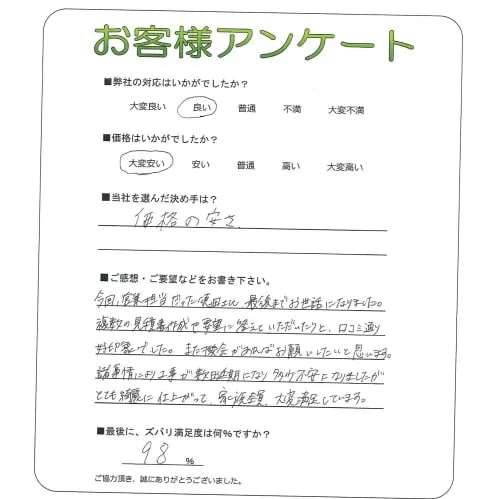 お客様アンケート
■弊社の対応はいかがでしたか？
大変良い 良い 普通 不満 大変不満
■価格はいかがでしたか？
大変安い 安い 普通 高い 大変高い
■当社を選んだ決め手は？
価格の安さ
■ご感想・ご要望などをお書き下さい。
今回、営業担当だった さん、最後までお世話になりました。
複数の見積書作成や要望に答えていただいたりと、口コミ通り
好印象でした。また機会があればお願いしたいと思います。
諸事情により工事が数回延期になり 不安になりましたが
とても綺麗に仕上がって、家族全員、大変満足しています。
■最後に、ズバリ満足度は何％ですか？
98 %
ご協力頂き、誠にありがとうございました。